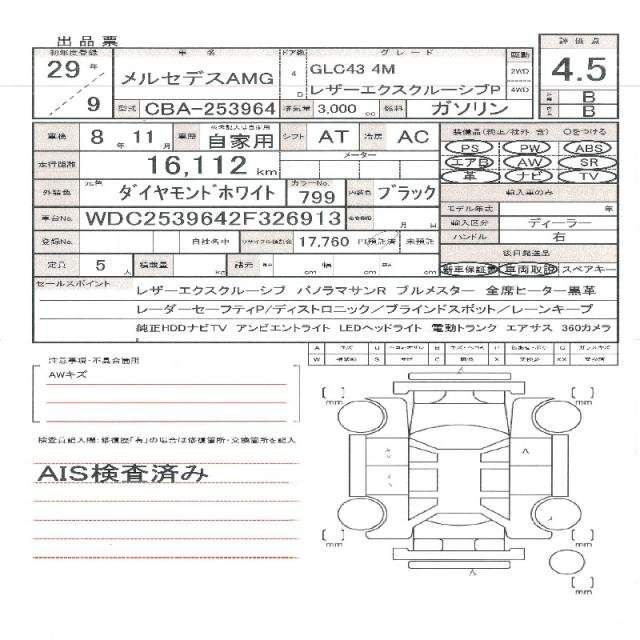 出品票
初年度登録 車名 ドア数 グレード 駆動 評価点
29年 9 メルセデスAMG 4 D GLC43 4M レザーエクスクルーシブP 2WD 4WD 4.5
型式 CBA-253964 排気量 3,000 cc 燃料 ガソリン B B
車検 8年 11月 車歴 自家用 シフト AT 冷房 AC 装備品(純正/社外 含) ○をつける
PS PW ABS
走行距離 16,112 km メーター エアB AW SR
革 ナビ TV
外装色 元色 ダイヤモンドホワイト カラーNo. 799 内装色 ブラック 輸入車のみ
モデル年式 年
車台No. WDC2539642F326913 月 日 輸入区分 ディーラー
ハンドル 右
登録No. 自社名中 リサイクル預託金 17,760 預託済 未預託 後日発送品
定員 5人 積載量 kg 諸元 長 cm 幅 cm 高 cm 新車保証書 車両取説 スペアキー
セールスポイント レザーエクスクルーシブ パノラマサンR ブルメスター 全席ヒーター黒革
レーダーセーフティP/ディストロニック/ブラインドスポット/レーンキープ
純正HDDナビTV アンビエントライト LEDヘッドライト 電動トランク エアサス 360カメラ
注意事項・不具合箇所
AWキズ
検査員記入欄:修復歴「有」の場合は修復箇所・交換箇所を記入
AIS検査済み
mm mm
mm mm